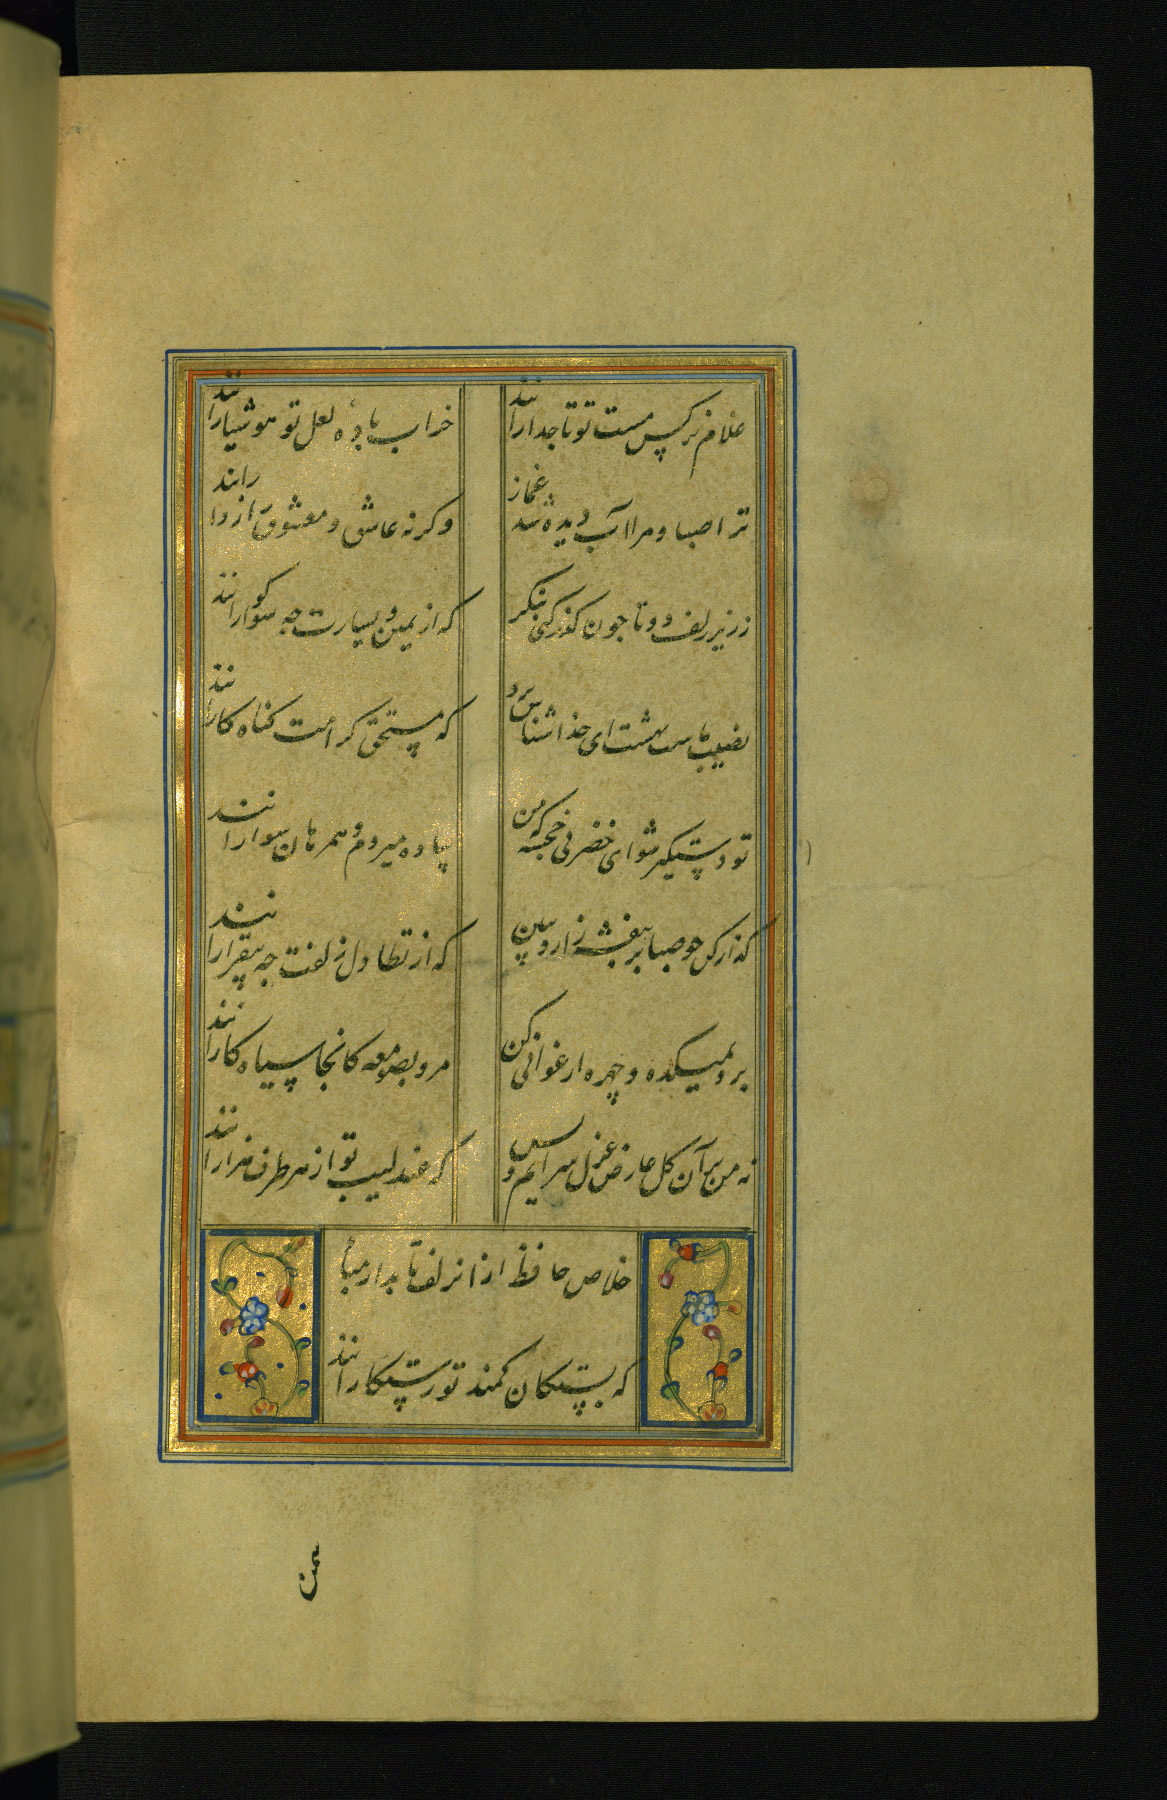 غلام نرکس مست تو تاجدارانند
خراب باده لعل تو هوشیارانند
ترا صبا و مرا آب دیده شد غماز
وکرنه عاشق و معشوق رازدارانند
ز زیر زلف دوتا چون کذر کنی بنکر
که از یمین و یسارت چه سوکوارانند
نصیب ماست بهشت ای خداشناس برو
که مستحق کرامت کناه کارانند
تو دستکیر شو ای خضر پی خجسته که من
پیاده میروم و همرهان سوارانند
کذار کن چو صبا بر بنفشه زار و ببین
که از تطاول زلفت چه بیقرارانند
برو بمیکده و چهره ارغوانی کن
مرو بصومعه کانجا سیاه کارانند
نه من بر آن کل عارض غزل سرایم و بس
که عندلیب تو از هر طرف هزارانند
خلاص حافظ از آن زلف تابدار مباد
که بستکان کمند تو رستکارانند